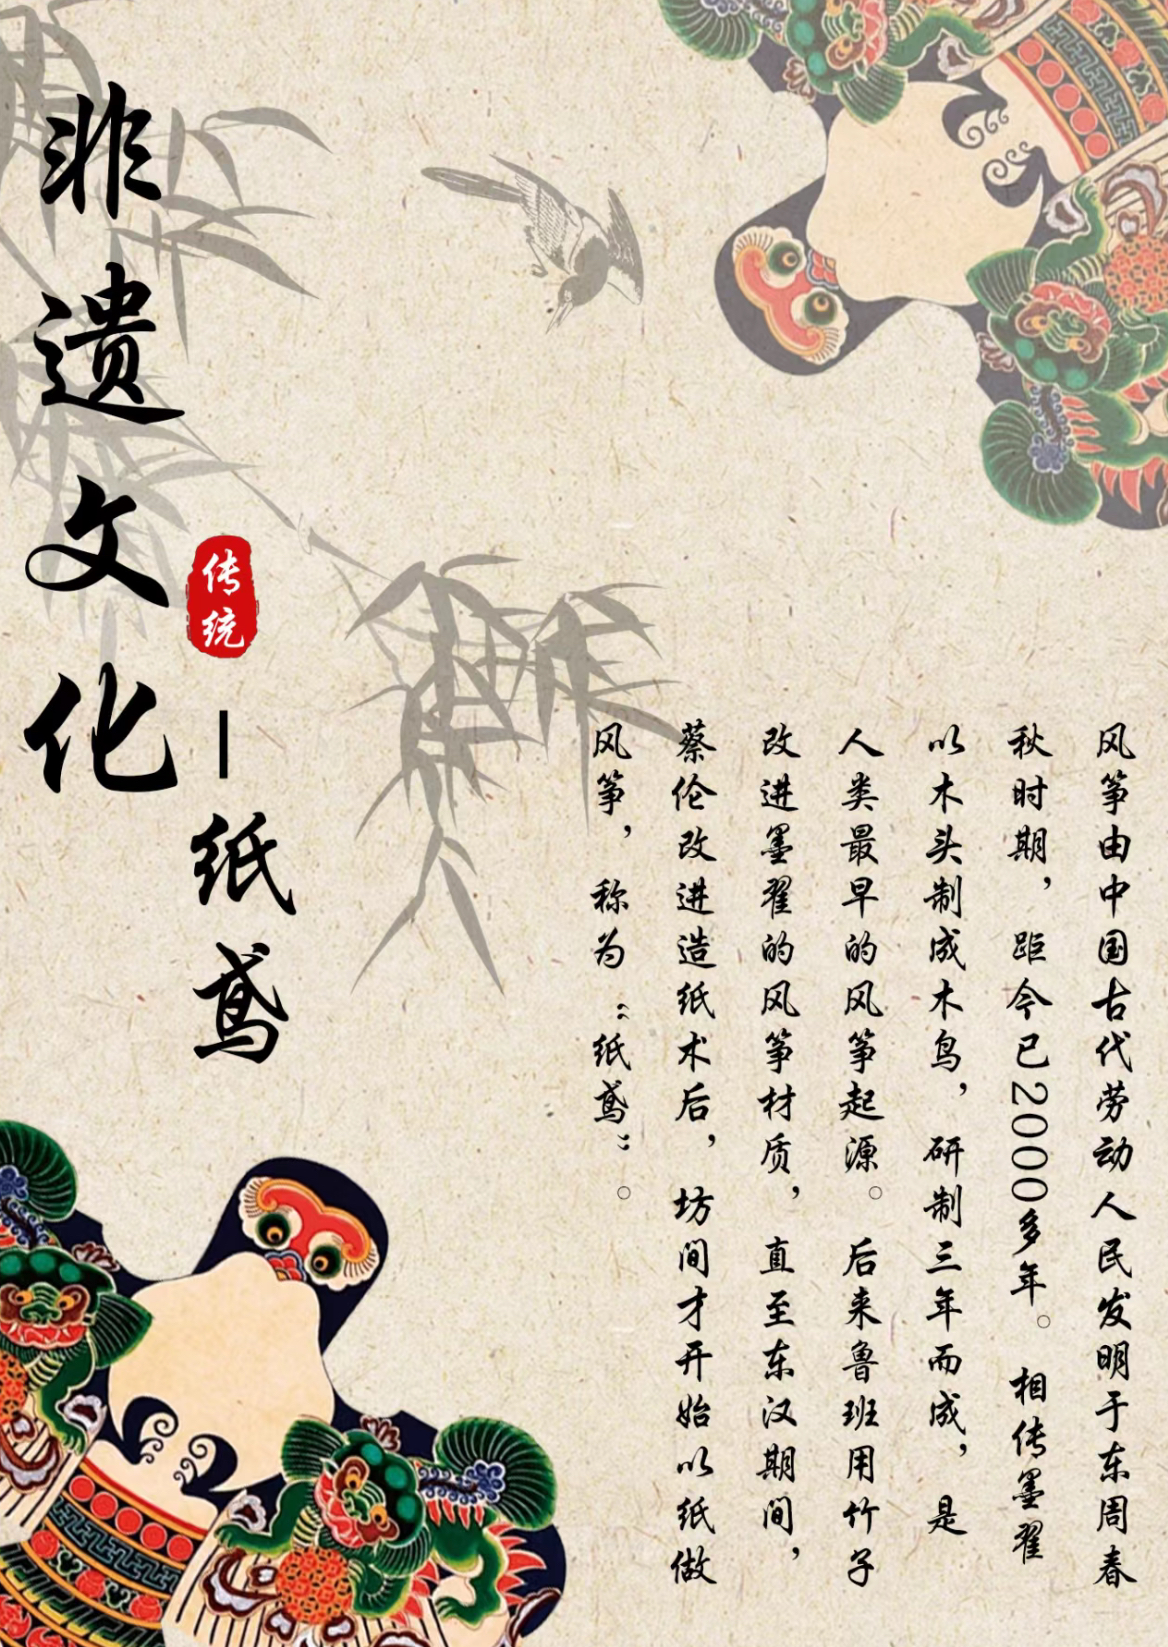 非遗文化
传统
-纸鸢
风筝由中国古代劳动人民发明于东周春
秋时期，距今已2000多年。相传墨翟
以木头制成木鸟，研制三年而成，是
人类最早的风筝起源。后来鲁班用竹子
改进墨翟的风筝材质，直至东汉期间，
蔡伦改进造纸术后，坊间才开始以纸做
风筝，称为“纸鸢”。